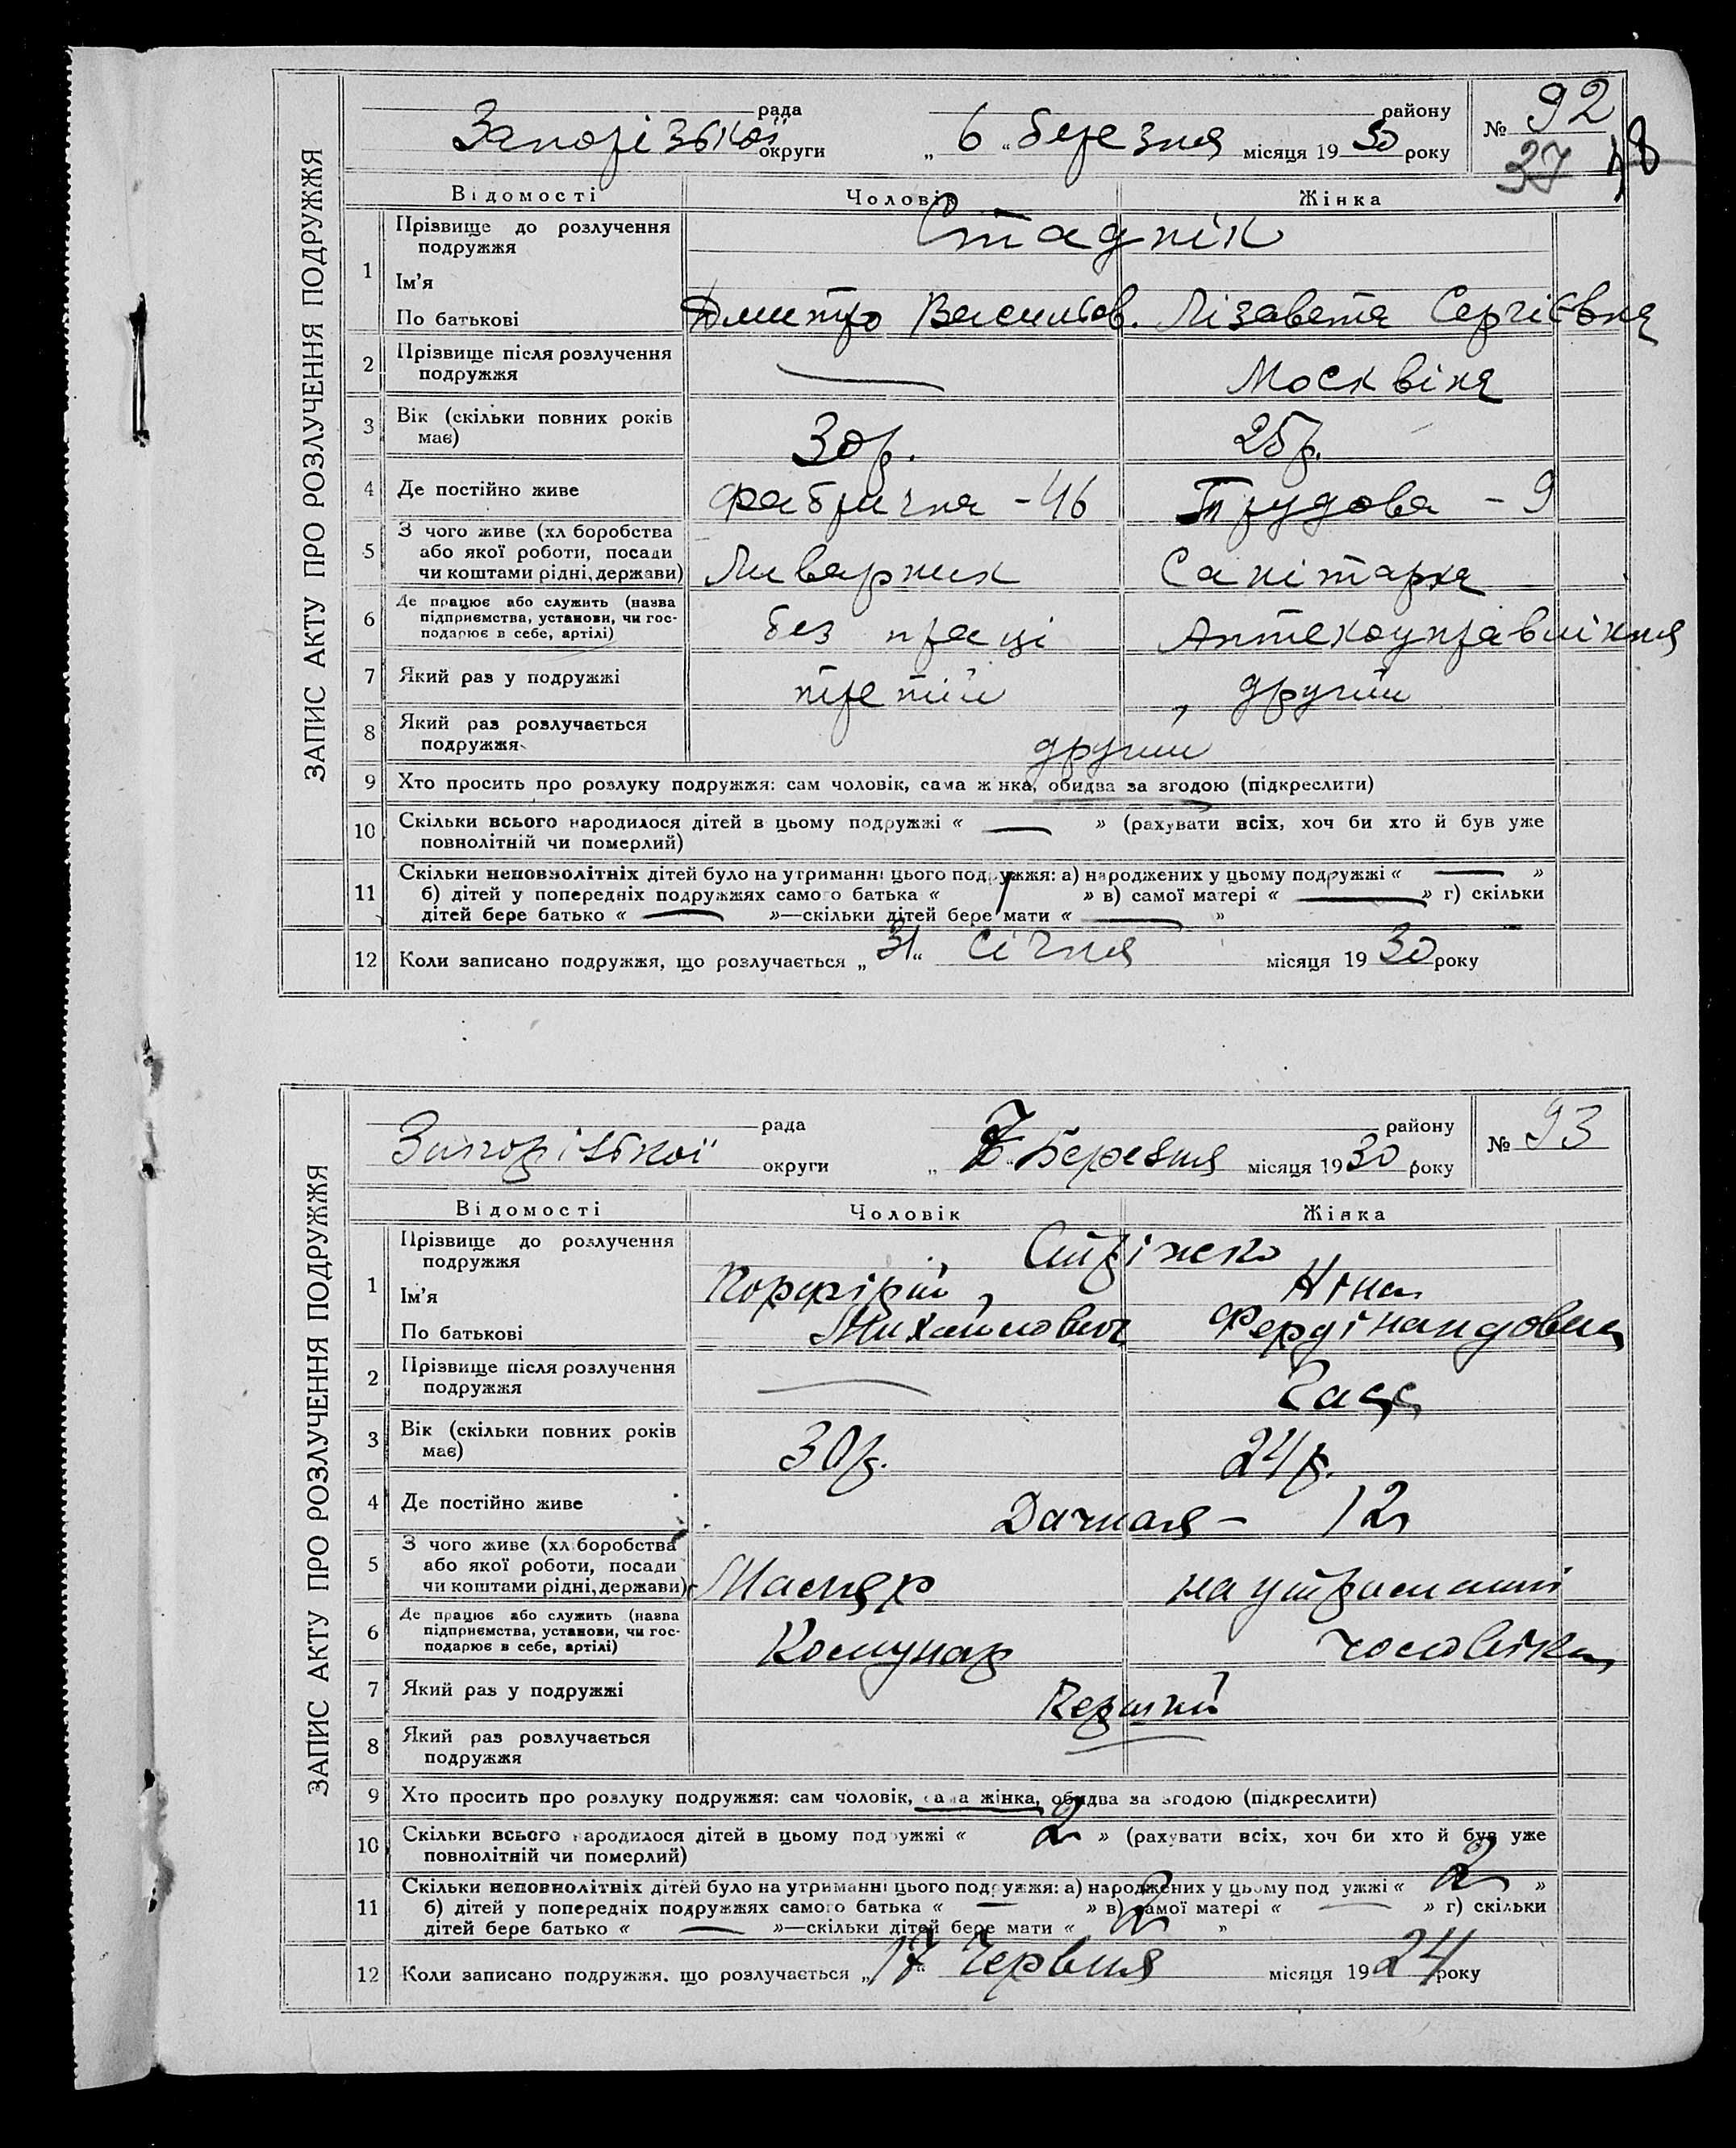 ЗАПИС АКТУ ПРО РОЗЛУЧЕННЯ ПОДРУЖЖЯ
рада району № 92
Запорізької округи „ 6 “ березня місяця 19 30 року
37 48
Відомості Чоловік Жінка
1 Прізвище до розлучення подружжя Стаднік
Ім'я
По батькові Дмитро Васильов. Лізавета Сергієвна
2 Прізвище після розлучення
подружжя — Москвіна
3 Вік (скільки повних років
має) 30 р. 25 р.
4 Де постійно живе Фабрична - 46 Трудова - 9
5 З чого живе (хл боробства
або якої роботи, посади
чи коштами рідні, держави) Ливарник Санітарка
6 Де працює або служить (назва
підприємства, установи, чи гос-
подарює в себе, артілі) без праці Аптекоуправління
7 Який раз у подружжі третій другий
8 Який раз розлучається
подружжя другий
9 Хто просить про розлуку подружжя: сам чоловік, сама жінка, обидва за згодою (підкреслити)
10 Скільки всього народилося дітей в цьому подружжі « — » (рахувати всіх, хоч би хто й був уже
повнолітній чи померлий)
11 Скільки неповнолітніх дітей було на утриманні цього подружжя: а) народжених у цьому подружжі « — »
б) дітей у попередніх подружжях самого батька « 1 » в) самої матері « — » г) скільки
дітей бере батько « — »—скільки дітей бере мати « — »
12 Коли записано подружжя, що розлучається „ 31 “ Січня місяця 19 30 року
ЗАПИС АКТУ ПРО РОЗЛУЧЕННЯ ПОДРУЖЖЯ
рада району № 93
Запорізької округи „ 7 “ Березня місяця 19 30 року
Відомості Чоловік Жінка
1 Прізвище до розлучення
подружжя
Ім'я Порфірій Ніна
По батькові Михайлович Фердінандовна
2 Прізвище після розлучення
подружжя —
3 Вік (скільки повних років
має) 30 р. 24 р.
4 Де постійно живе Дачная - 12
5 З чого живе (хл боробства
або якої роботи, посади
чи коштами рідні, держави) Маляр на утриманні
6 Де працює або служить (назва
підприємства, установи, чи гос-
подарює в себе, артілі) Комунар чоловіка
7 Який раз у подружжі Перший
8 Який раз розлучається
подружжя
9 Хто просить про розлуку подружжя: сам чоловік, сама жінка, обидва за згодою (підкреслити)
10 Скільки всього народилося дітей в цьому подружжі « 2 » (рахувати всіх, хоч би хто й був уже
повнолітній чи померлий)
11 Скільки неповнолітніх дітей було на утриманні цього подружжя: а) народжених у цьому подружжі « 2 »
б) дітей у попередніх подружжях самого батька « — » в) самої матері « — » г) скільки
дітей бере батько « — »—скільки дітей бере мати « 2 »
12 Коли записано подружжя, що розлучається „ 17 “ Червня місяця 19 24 року